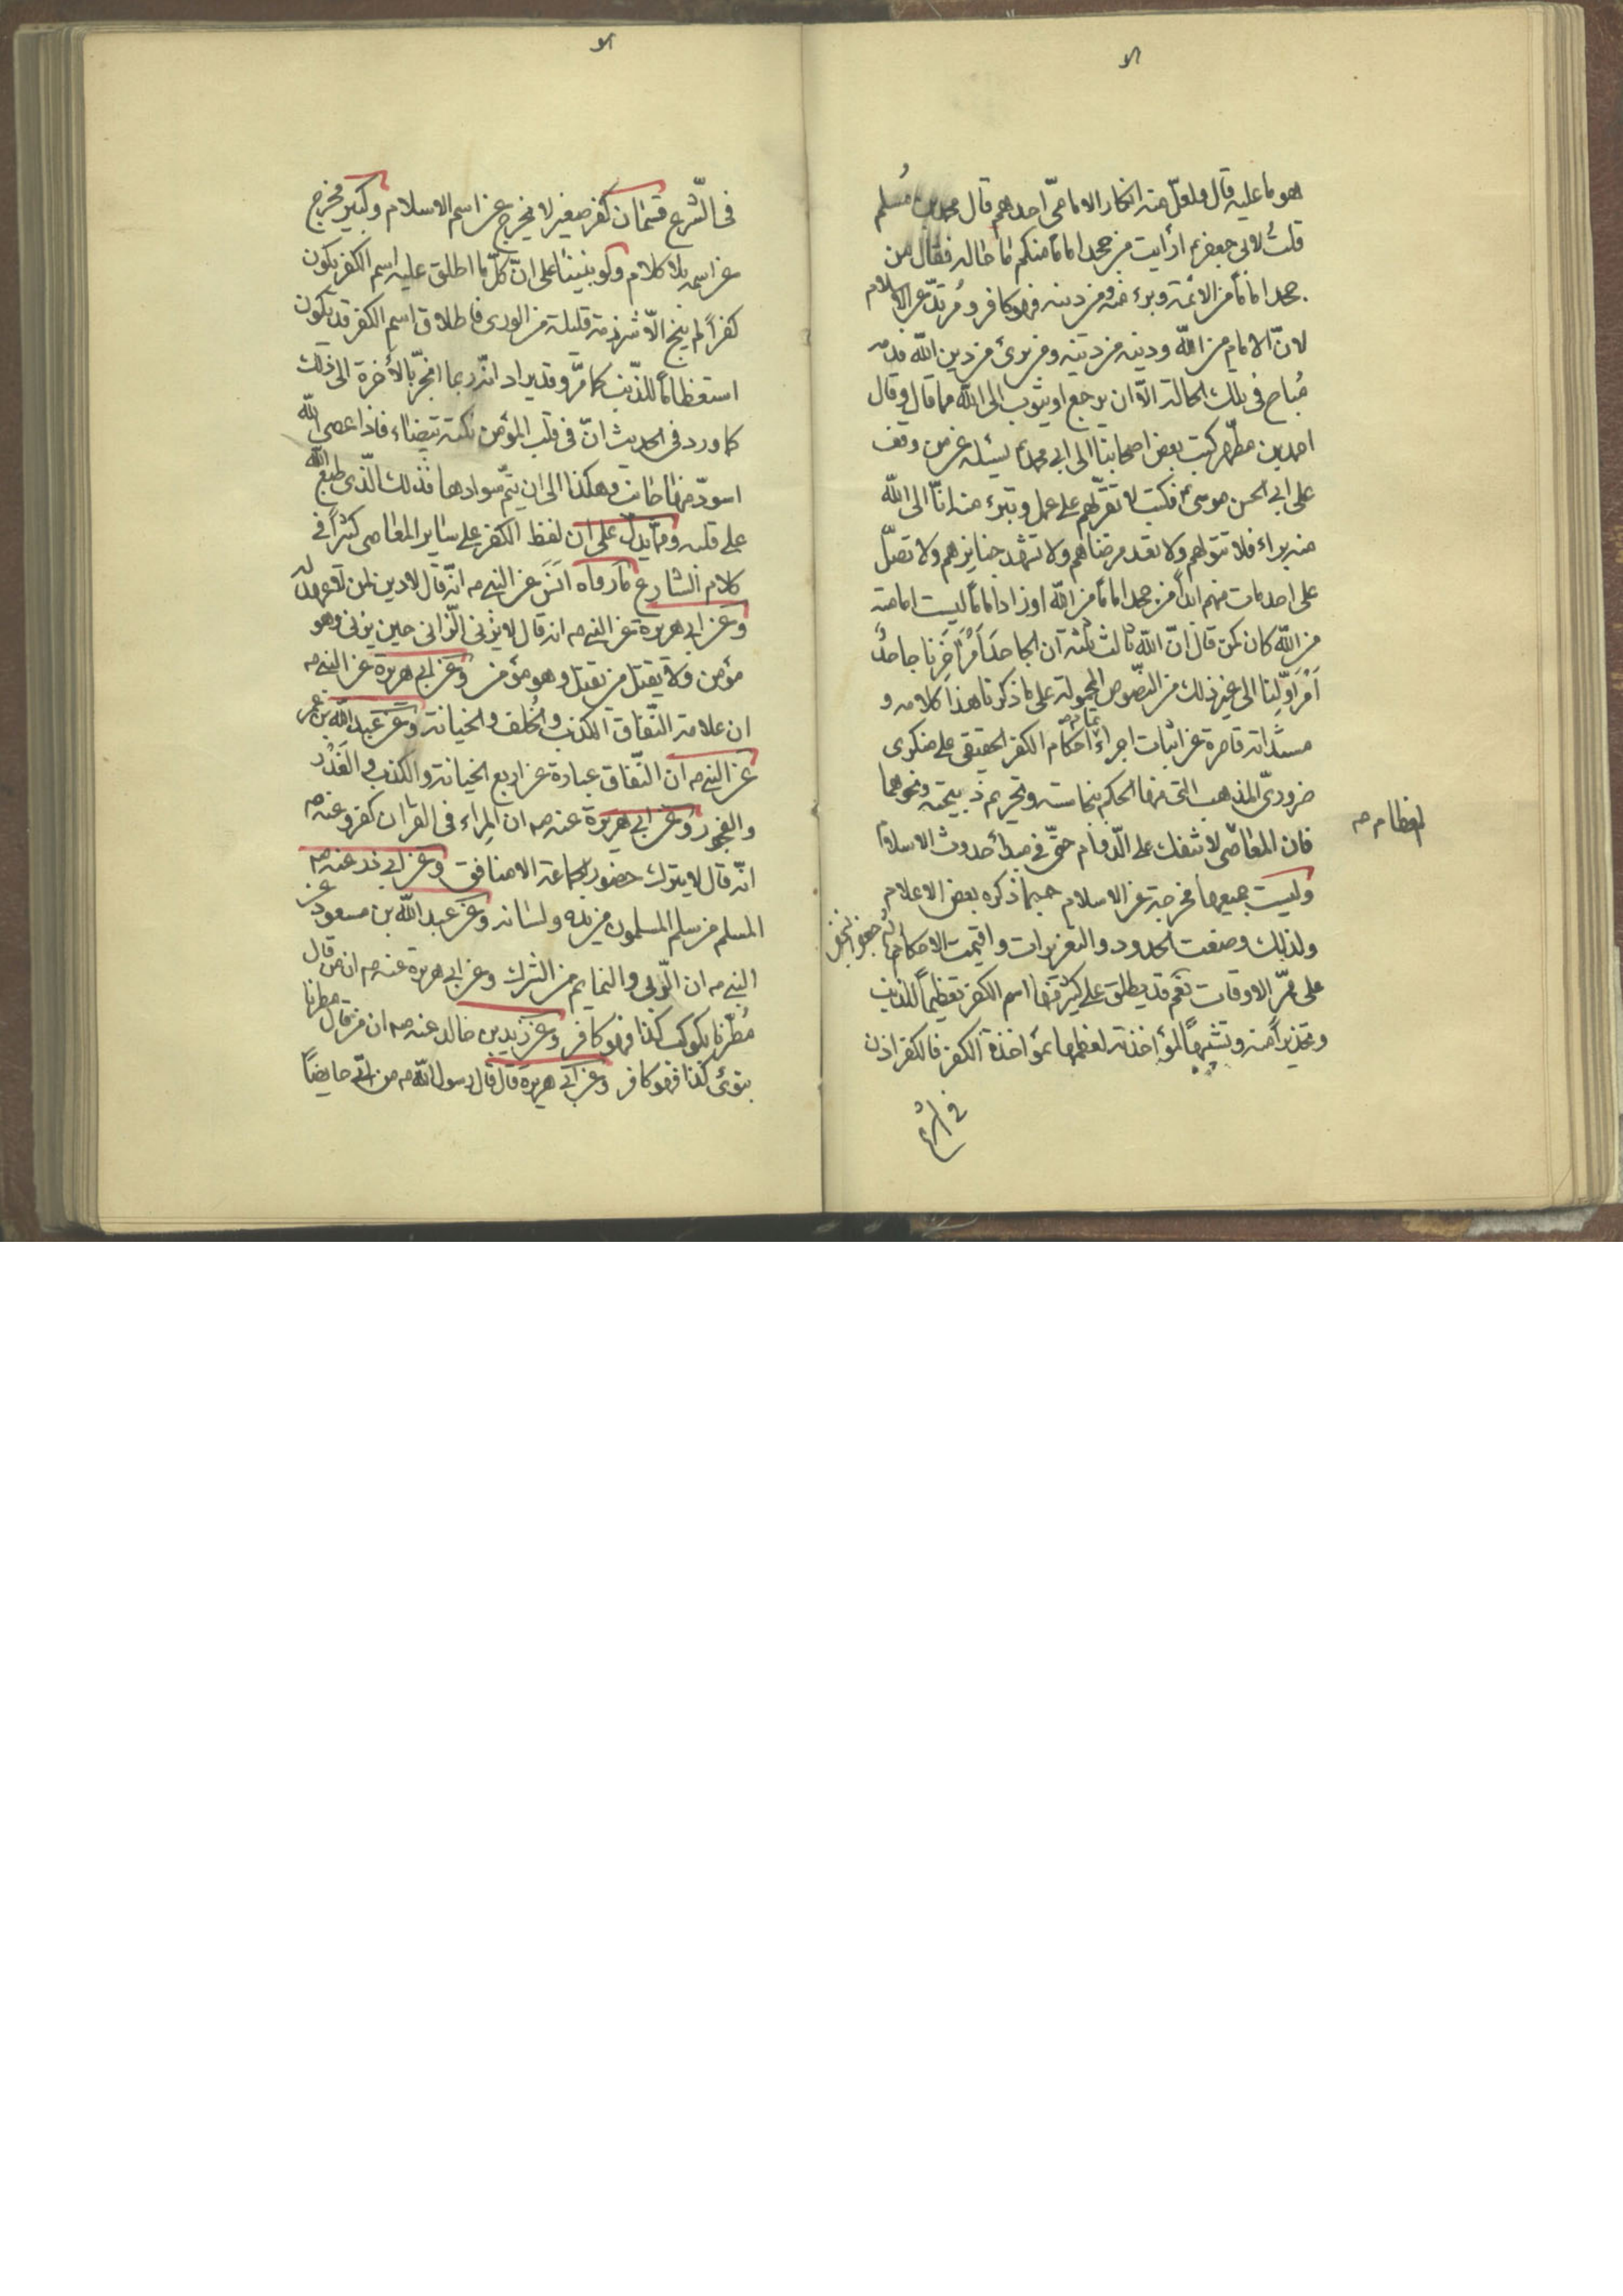 هو ما عليه قال ولعلّ منه انكار الامامىّ احدهم قال محمد بن مُسلم
قلتُ لابى جعفر ع ارأيت من جحد اماماً منكم ما حاله فقال من
جحد اماماً من الائمة وبرء منه ومن دينه فهو كافر ومُرتدّ عن الاسلام
لانّ الامام من الله ودينه من دينه ومن برئ من دين الله فدمه
مُباح فى تلك الحالة الّا ان يرجع او يتوب الى الله مما قال وقال
احمد بن مطهر كتب بعض اصحابنا الى ابى محمد ع يسئله عن من وقف
على ابى الحسن موسى ع فكتب لا تترحّم على عمك وتبرء منه انّا الى الله
منه براء فلا تتولهم ولا تعد مرضاهم ولا تشهد جنايزهم ولا تصلّ
على احد مات منهم ابداً من جحد اماماً من الله او زاد اماماً ليست امامته
من الله كان كمن قال انّ الله ثالث ثلثه ان الجاحد اَمْرَ اٰخِرِنا جاحدٌ
اَمْرَ اَوّلِنا الى غير ذلك من النصوص المحمولة على ما ذكرنا هذا كلامه و
مستنداته قاصرة عن اثبات اجراء تمام احكام الكفر الحقيقى على منكرى
ضرورىّ المذهب التى منها الحكم بنجاسته وتحريم ذبيحته ونحوهما
فان المعاصى لا تنفك على الدّوام حتّى فى مبدأ حدوث الاسلام
وليست جميعها مخرجة عن الاسلام حسبما ذكره بعض الاعلام
ولذلك وضعت الحدود والتعزيرات واقيمت الاحكام
على ممرّ الاوقات نعم قد يطلق على كثير منها اسم الكفر تعظيماً للذنب
وتحذيراً منه وتشبيهاً لمؤاخذته لعظمها بمؤاخذة الكفر فالكفر اذن
فى الشرع
فى الشّرع قسمان كفر صغير لا يخرج عن اسم الاسلام وكبير مخرج
عن اسمه بلا كلام ولو بنينا على انّ كلّ ما اطلق عليه اسم الكفر يكون
كفراً لم ينج الّا شرذمة قليلة من الورى فاطلاق اسم الكفر قد يكون
استعظاماً للذّنب كما مرّ وقد يراد انّه ربما انجرّ بالأخرة الى ذلك
كما ورد فى الحديث انّ فى قلب المؤمن نكتة بيضاء فاذا عصى الله
اسودّ منها جانب وهكذا الى ان يتمّ سوادها فذلك الّذى طبع الله
على قلبه وممّا يدلّ على ان لفظ الكفر على ساير المعاصى كثيراً فى
كلام الشارع ما رواه اَنَس عن النبى ص انّه قال لا دين لمن لا عهد له
وعن ابى هريرة عن النبى ص انه قال لا يزنى الزّانى حين يزنى وهو
مؤمن ولا يقتل من يقتل وهو مؤمن وعن ابى هريرة عن النبى ص
ان علامة النّفاق الكذب والخُلف والخيانة وعن عبد الله بن عمر
عن النبى ص ان النّفاق عبارة عن اربع الخيانة والكذب والغَدْر
والفجور وعن ابى هريرة عنه ص ان المِراء فى القران كفر وعنه ص
انّه قال لا يترك حضور الجماعة الا منافق وعن ابى ذر عنه ص
المسلم من سلم المسلمون من يده ولسانه وعن عبد الله بن مسعود عن
النبى ص ان الرّقى والتمايم من الشرك وعن ابى هريرة عنه ص ان من قال
مُطِرنا بكوكب كذا فهو كافر وعن زيد بن خالد عنه ص ان من قال مطرنا
بنوئ كذا فهو كافر وعن ابى هريرة قال قال رسول الله ص من اتى حايضاً